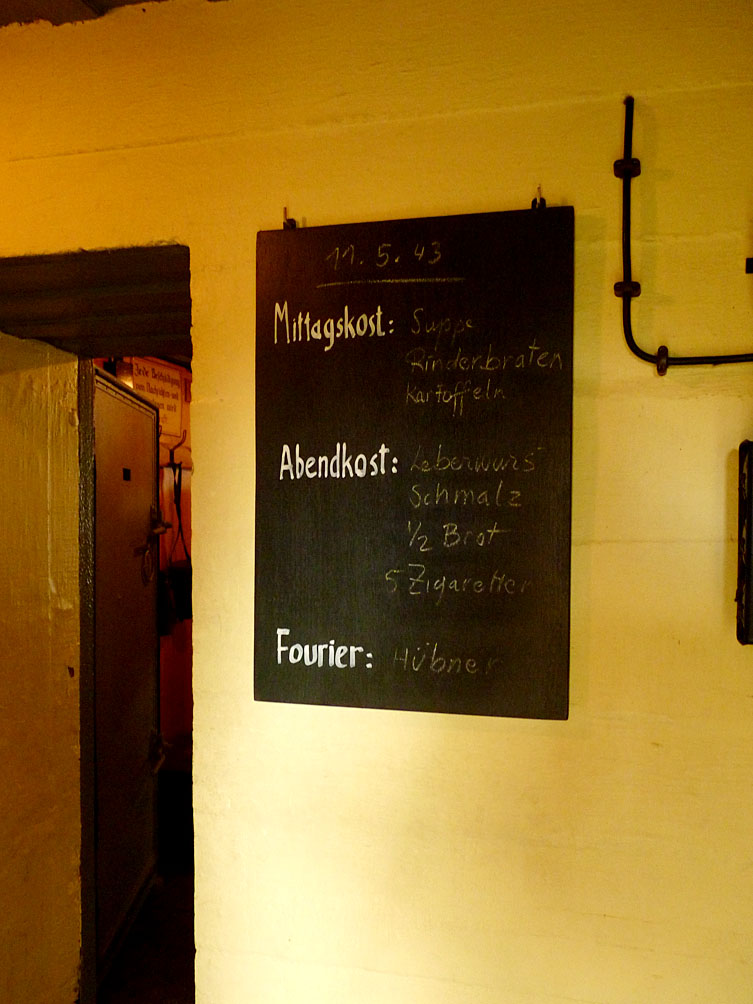 11.5.43
Mittagskost: Suppe
Rinderbraten
Kartoffeln
Abendkost: Leberwurst
Schmalz
1/2 Brot
5 Zigaretten
Fourier: Hübner
Jede Beschädigung